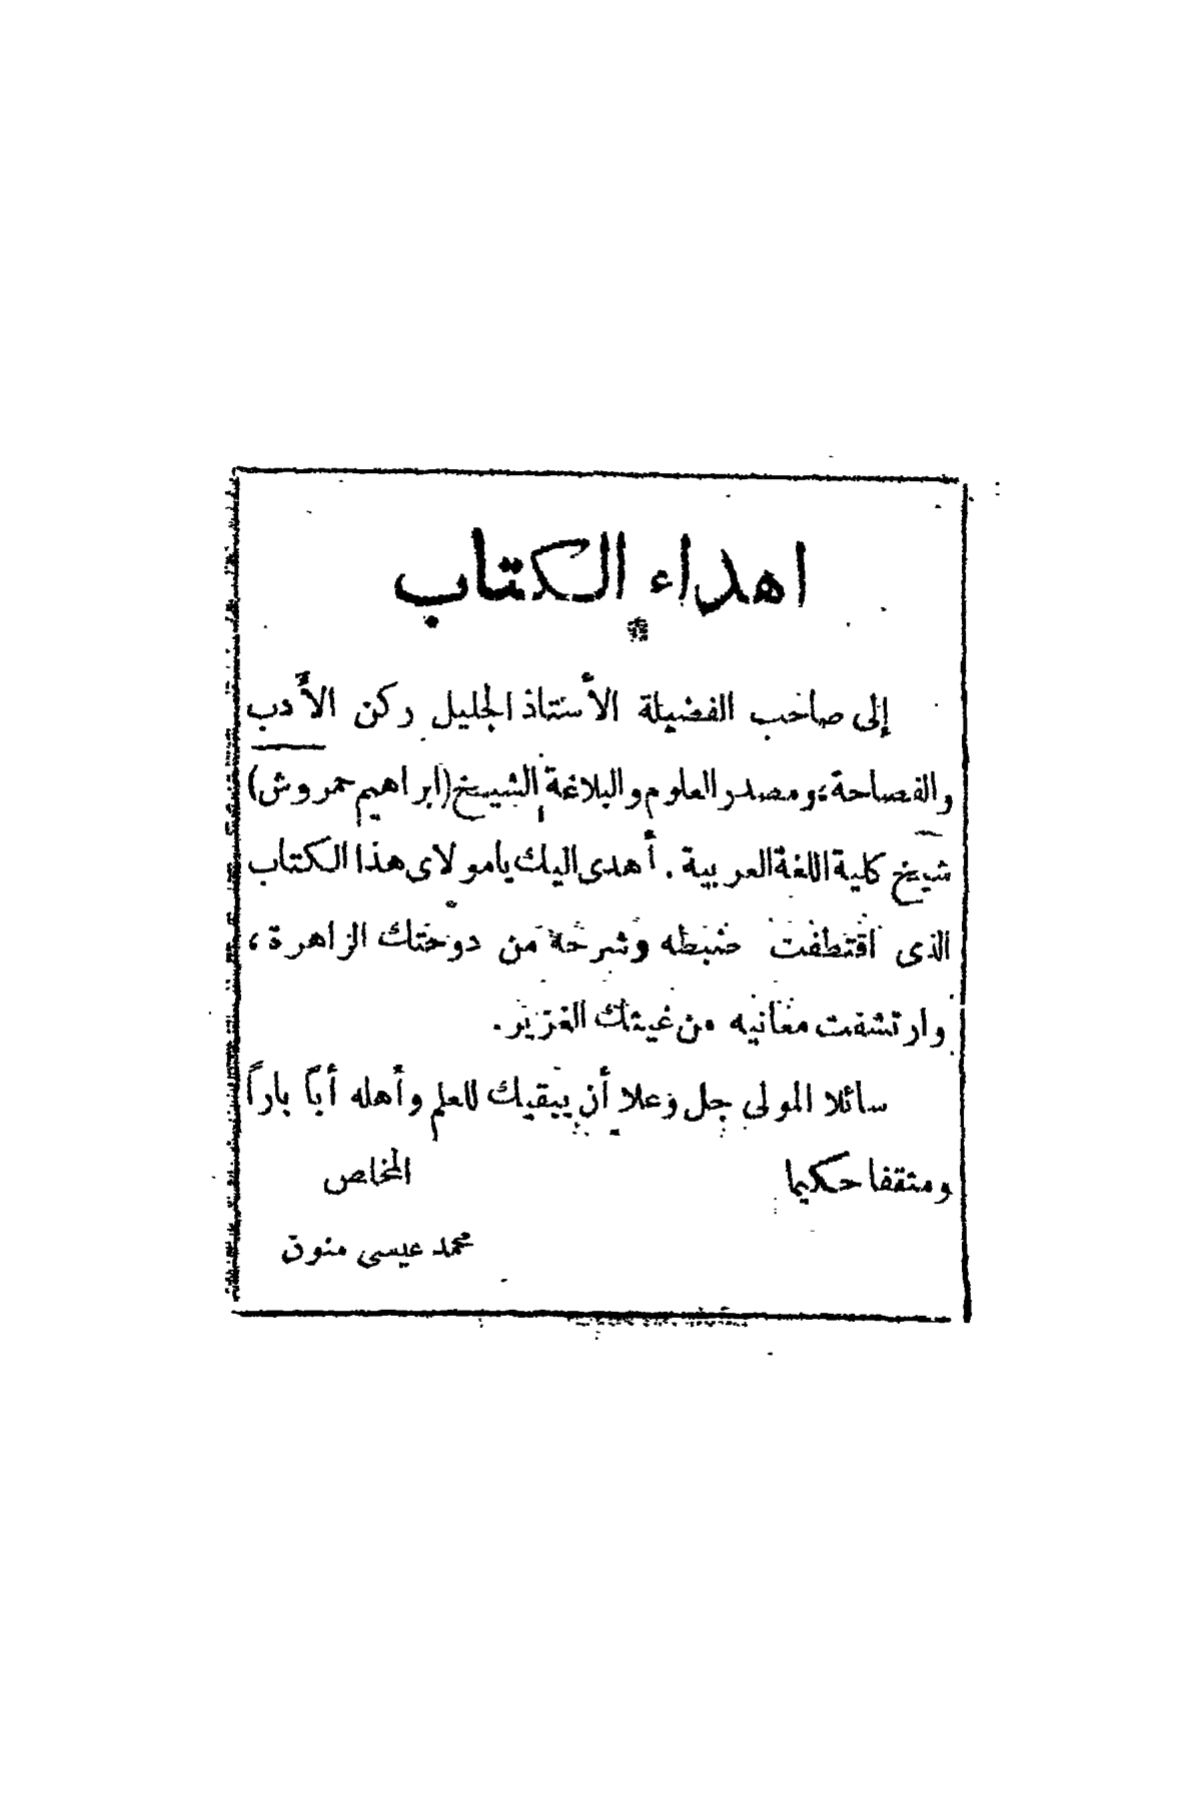 اهداء الكتاب
إلى صاحب الفضيلة الأستاذ الجليل ركن الأدب
والفصاحة، ومصدر العلوم والبلاغة الشيخ (ابراهيم حمروش)
شيخ كلية اللغة العربية . أهدى اليك يامولاى هذا الكتاب
الذى اقتطفت ضبطه وشرحه من دوحتك الزاهرة ،
وارتشفت معانيه من غيثك الغزير .
سائلا المولى جل وعلا أن يبقيك للعلم وأهله أباً باراً
ومثقفا حكيما المخلص
محمد عيسى منون